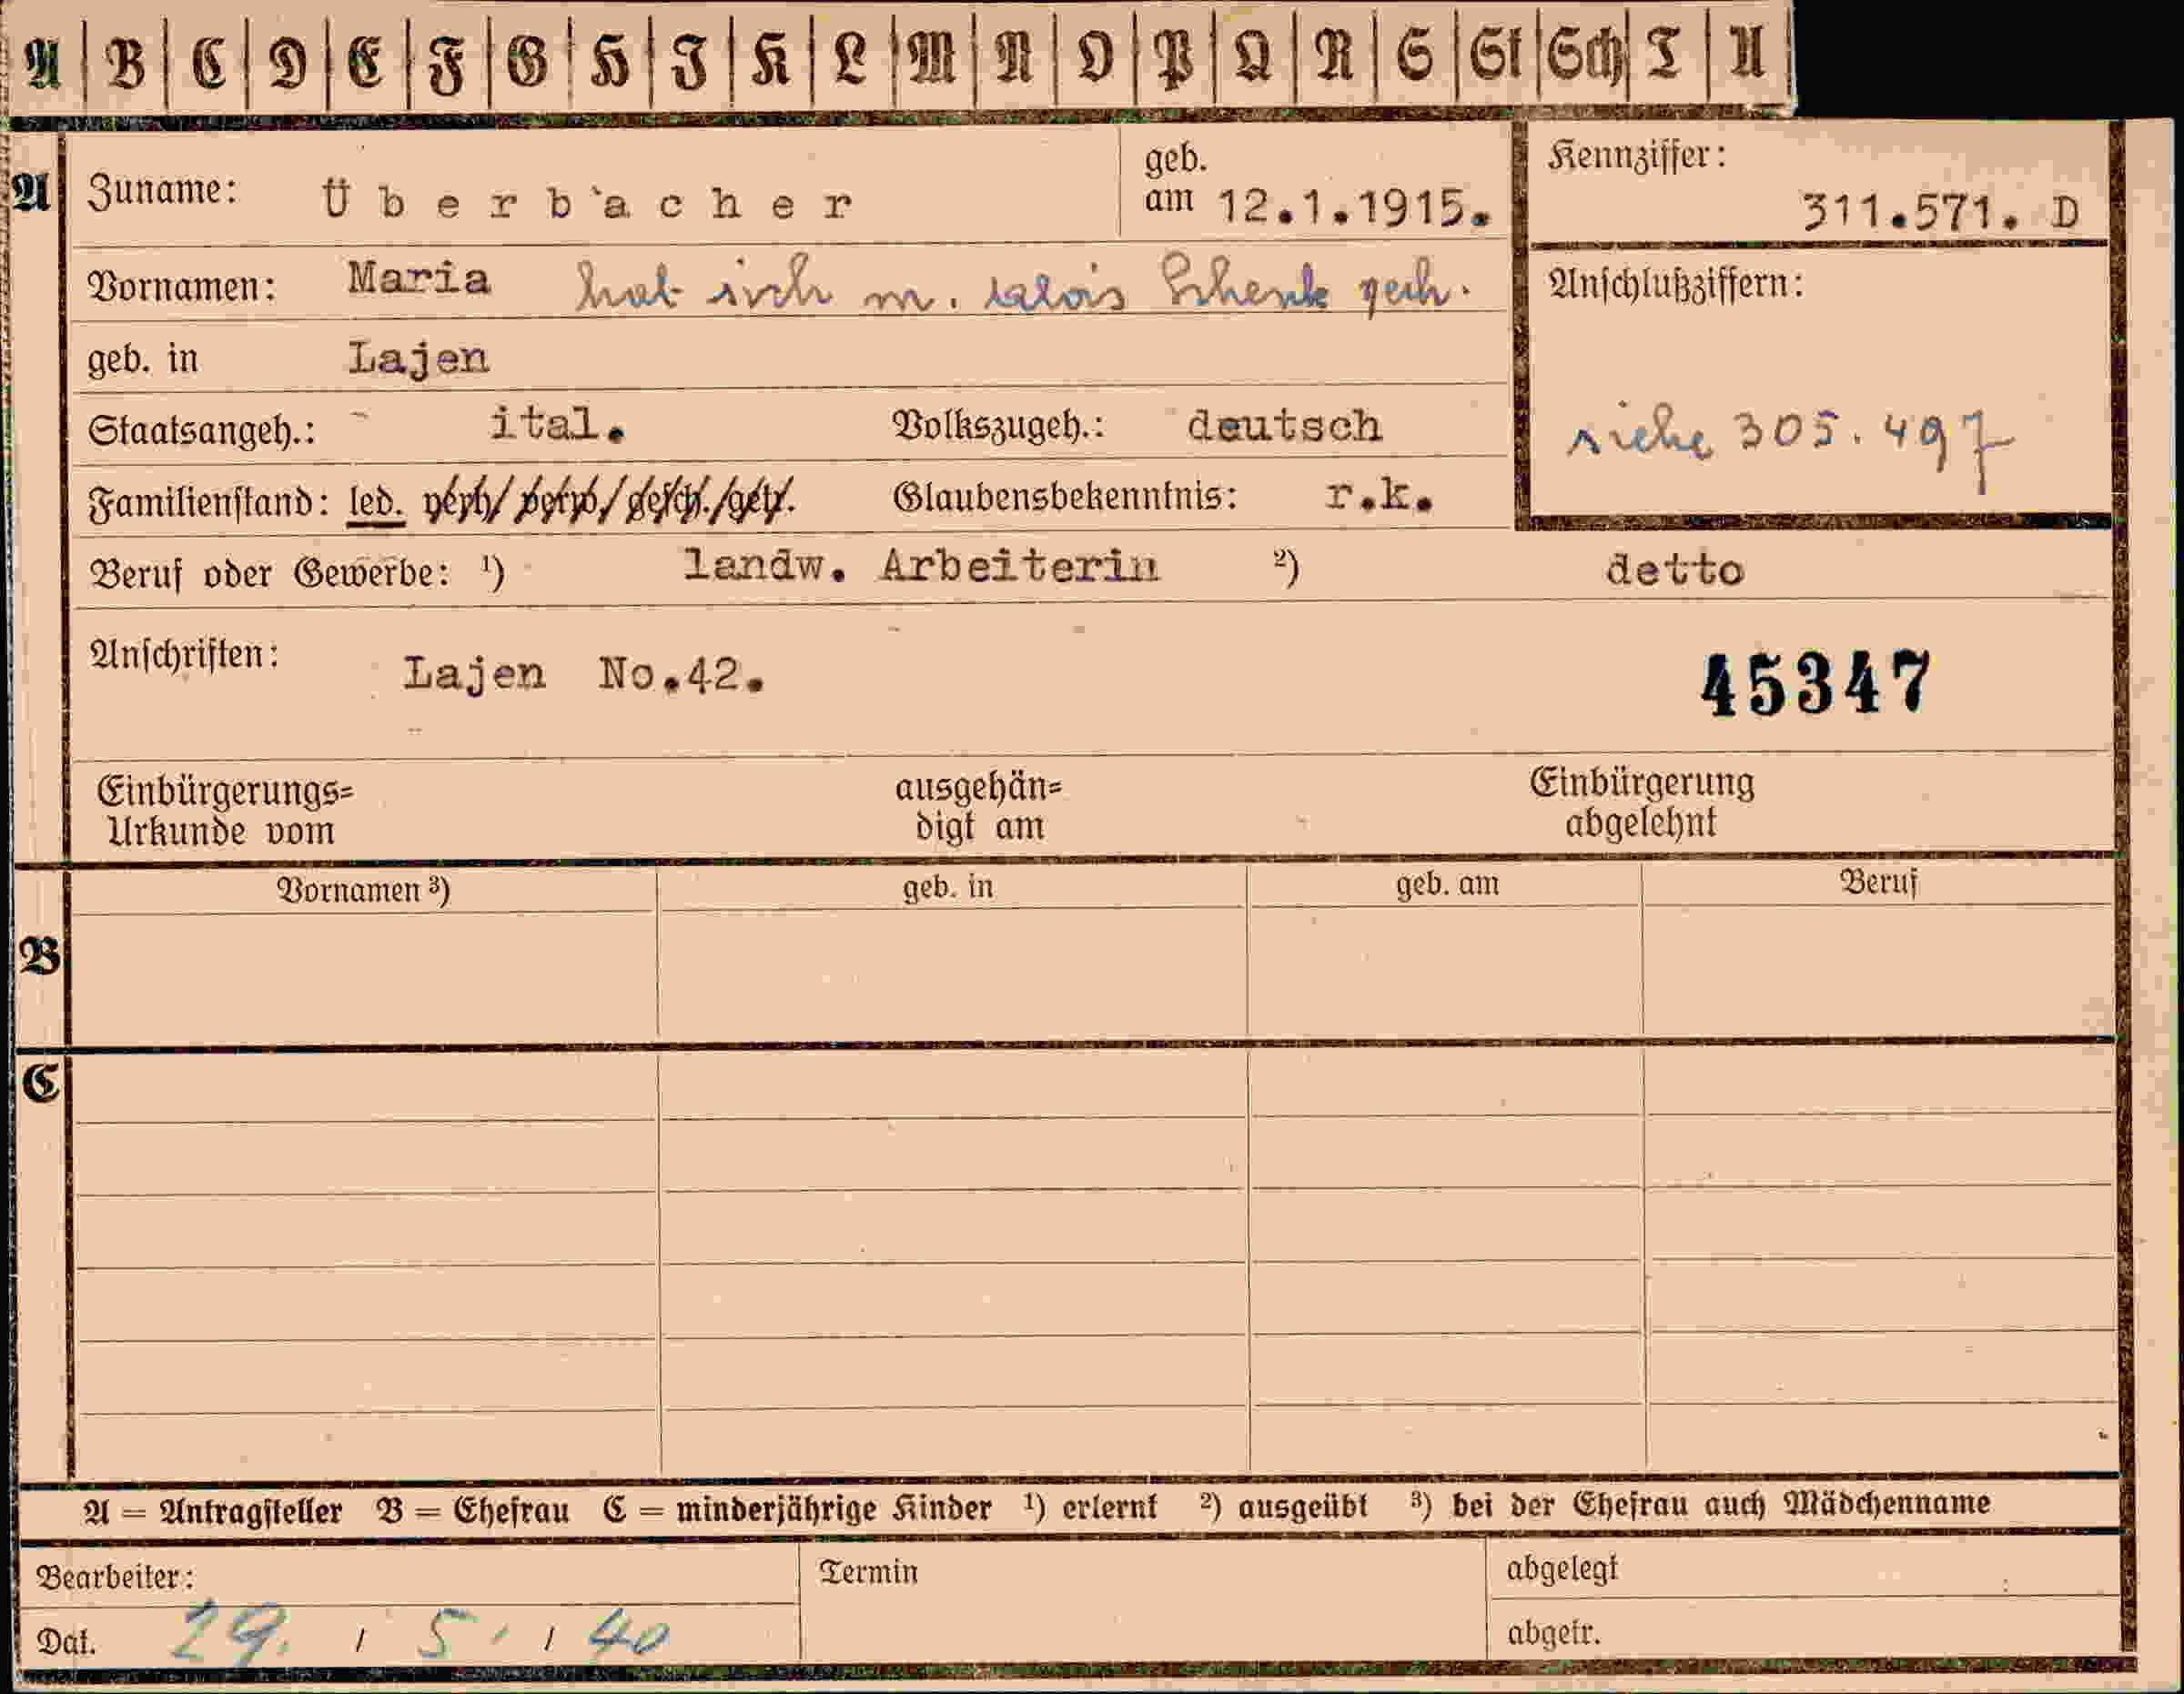 A B C D E F G H I K L M N O P Q R S St Sch T U
A Zuname: Überbacher geb. am 12.1.1915. Kennziffer: 311.571. D
Vornamen: Maria hat sich m. Alois Schenk Anschlußziffern:
geb. in Lajen
Staatsangeh.: ital. Volkszugeh.: deutsch siehe 305.497
Familienstand: led. verh/ verw/ gesch./getr. Glaubensbekenntnis: r.k.
Beruf oder Gewerbe: ¹) landw. Arbeiterin ²) detto
Anschriften: Lajen No.42. 45347
Einbürgerungs= ausgehän= Einbürgerung
Urkunde vom digt am abgelehnt
Vornamen ³) geb. in geb. am Beruf
B
C
A = Antragsteller B = Ehefrau C = minderjährige Kinder ¹) erlernt ²) ausgeübt ³) bei der Ehefrau auch Mädchenname
Bearbeiter: Termin abgelegt
Dat. 29. / 5. / 40 abgetr.